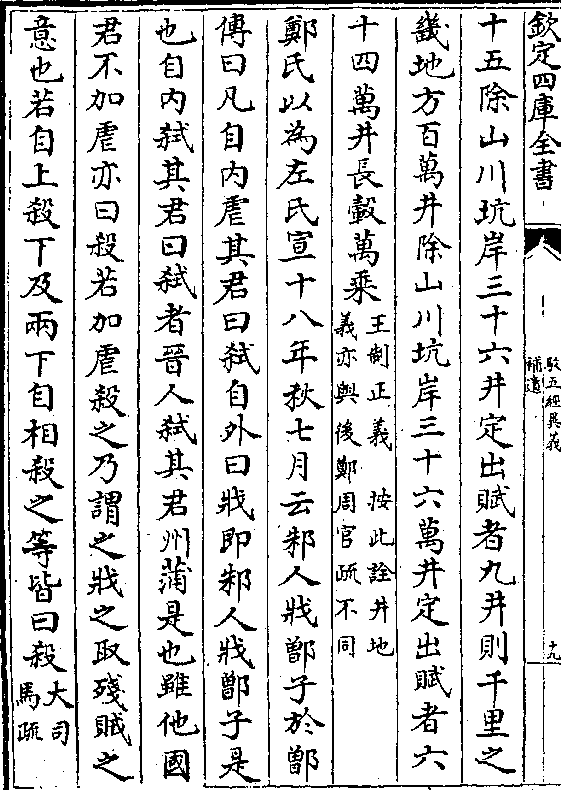 欽定四庫全書
駁五經異義
補遺
十九
十五除山川坑岸三十六井定出賦者九井則千里之
畿地方百萬井除山川坑岸三十六萬井定出賦者六
十四萬井長轂萬乘王制正義 按此詮井地
義亦與後鄭周官疏不同
鄭氏以為左氏宣十八年秋七月云邾人戕鄫子於鄫
傳曰凡自內虐其君曰弑自外曰戕即邾人戕鄫子是
也自內弑其君曰弑者晉人弑其君州蒲是也雖他國
君不加虐亦曰殺若加虐殺之乃謂之戕之取殘賊之
意也若自上殺下及兩下自相殺之等皆曰殺大司
馬疏